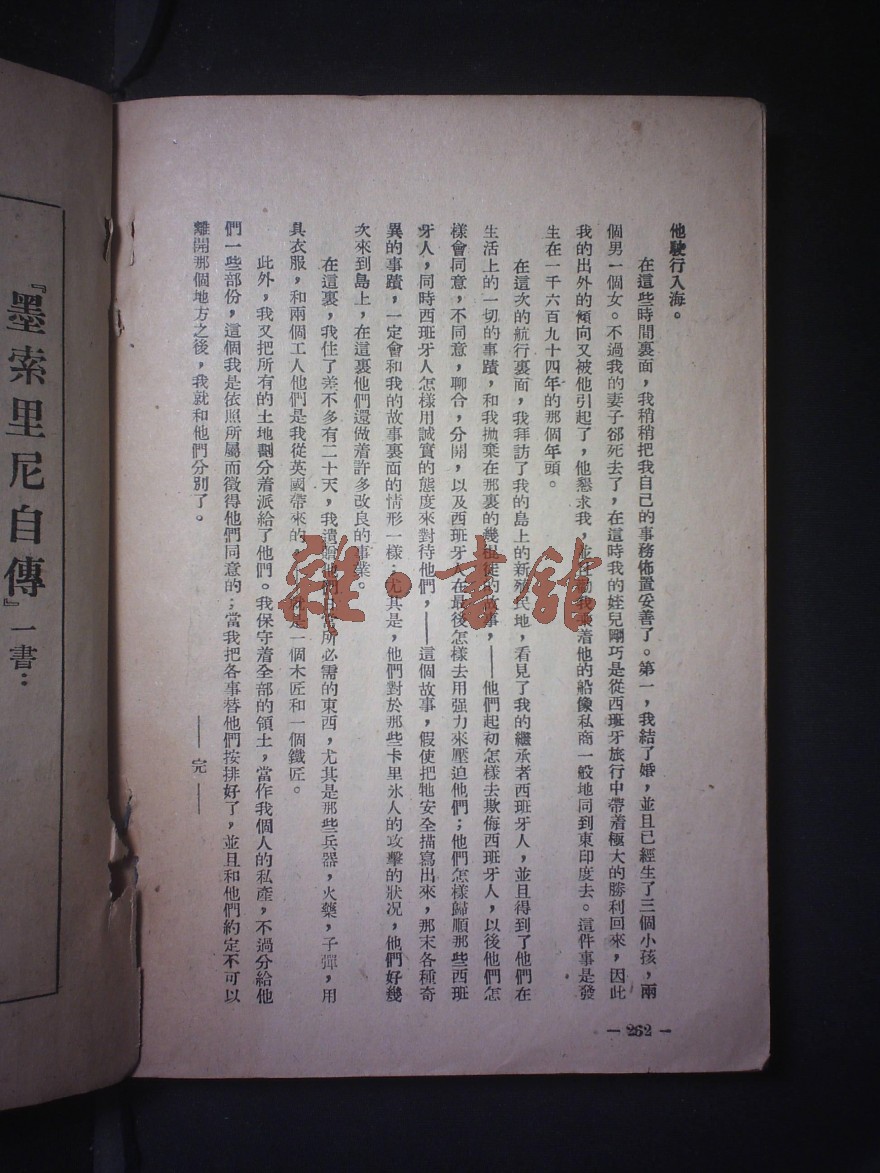 他駛行入海。
在這些時間裏面，我稍稍把我自己的事務佈置妥善了。第一，我結了婚，並且已經生了三個小孩，兩
個男一個女。不過我的妻子郤死去了，在這時我的姪兒剛巧是從西班牙旅行中帶着極大的勝利回來，因此
我的出外的傾向又被他引起了，他懇求我，並且勸我乘着他的船像私商一般地同到東印度去。這件事是發
生在一千六百九十四年的那個年頭。
在這次的航行裏面，我拜訪了我的島上的新殖民地，看見了我的繼承者西班牙人，並且得到了他們在
生活上的一切的事蹟，和我拋棄在那裏的幾個惡徒的故事，——他們起初怎樣去欺侮西班牙人，以後他們怎
樣會同意，不同意，聯合，分開，以及西班牙人在最後怎樣去用强力來壓迫他們；他們怎樣歸順那些西班
牙人，同時西班牙人怎樣用誠實的態度來對待他們，——這個故事，假使把牠安全描寫出來，那末各種奇
異的事蹟，一定會和我的故事裏面的情形一樣；尤其是，他們對於那些卡里氷人的攻擊的狀况，他們好幾
次來到島上，在這裏他們還做着許多改良的事業。
在這裏，我住了差不多有二十天，我遺贈他們日常所必需的東西，尤其是那些兵器，火藥，子彈，用
具衣服，和兩個工人他們是我從英國帶來的 就是一個木匠和一個鐵匠。
此外，我又把所有的土地劃分着派給了他們。我保守着全部的領土，當作我個人的私產，不過分給他
們一些部份，這個我是依照所屬而徵得他們同意的；當我把各事替他們按排好了，並且和他們約定不可以
離開那個地方之後，我就和他們分別了。
——完——
— 262 —
『墨索里尼自傳』一書：
雜·書舘